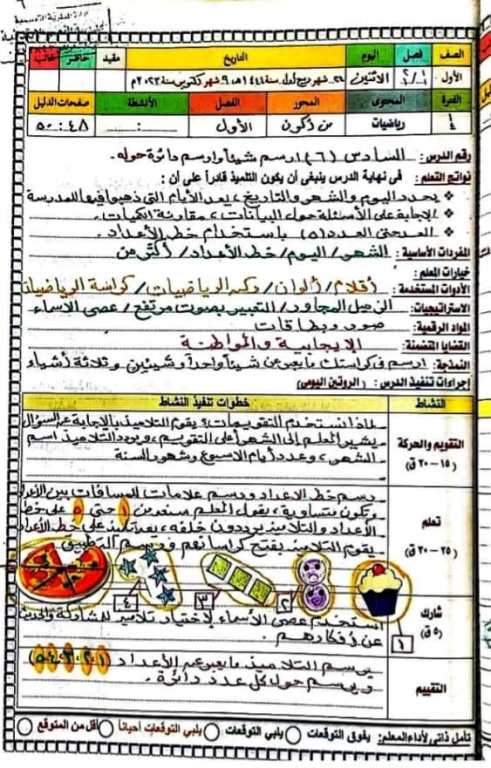 الصف فصل اليوم التاريخ مقيد حاضر غائب
الأول ٢/١ الاثنين ٢٢ شهر ربيع أول سنة ١٤٤٤هـ ٩ شهر أكتوبر سنة ٢٠٢٣م
الفترة المحتوى المحور الفصل الأنشطة صفحات الدليل
رياضيات من أكون الأول ٤٨ : ٥٠
رقم الدرس : السادس (٦) ارسم شيئاً وارسم دائرة حوله.
نواتج التعلم : في نهاية الدرس ينبغي أن يكون التلميذ قادراً على أن :
يحدد اليوم والشهر والتاريخ ، يعد الأيام التي ذهبوا فيها للمدرسة
الإجابة على الأسئلة حول البيانات ، مقارنة الكميات.
العد حتى العدد (٥) باستخدام خط الأعداد.
المفردات الأساسية : الشهر / اليوم / خط الأعداد / أكثر من
خيارات المعلم :
الأدوات المستخدمة : أقلام / ألوان / ركن الرياضيات / كراسة الرياضيات
الاستراتيجيات : الزميل المجاور / التعبير بصوت مرتفع / عصى الاسماء
المواد الرقمية : صور وبطاقات
القضايا المتضمنة : الإيجابية والمواطنة
النمذجة : ارسم في كراستك ما يعبر عن شيئاً واحداً وشيئين وثلاثة أشياء
إجراءات تنفيذ الدرس : (الروتين اليومي)
النشاط خطوات تنفيذ النشاط
التقويم والحركة
(١٥ – ٢٠ ق)
لماذا نستخدم التقويمات؟ يقوم التلاميذ بالإجابة عن السؤال
يشير المعلم إلى الشهر أعلى التقويم ، ويردد التلاميذ اسم
الشهر ، وعدد أيام الاسبوع وشهور السنة
تعلم
(٢٥ – ٢٠ ق)
رسم خط الاعداد ورسم علامات المسافات بين الأعداد
وتكون متساوية ، يقول المعلم سنعد من ١ حتى ٥ على خط
الأعداد والتلاميذ يرددون خلفه ، على خط الأعداد
يقوم التلاميذ بفتح كراساتهم ورسم التطبيق
٤ ٣ ٢ ١
شارك
(٥ ق)
استخدم عصى الأسماء لإختيار تلاميذ للمشاركة والتحدث
عن أفكارهم.
التقييم
يرسم التلاميذ ما يعبر عن الأعداد (١،٢،٣،٤،٥)
ويرسم حول كل عدد دائرة.
تأمل ذاتي لأداء المعلم: يفوق التوقعات يلبي التوقعات يلبي التوقعات أحياناً أقل من المتوقع